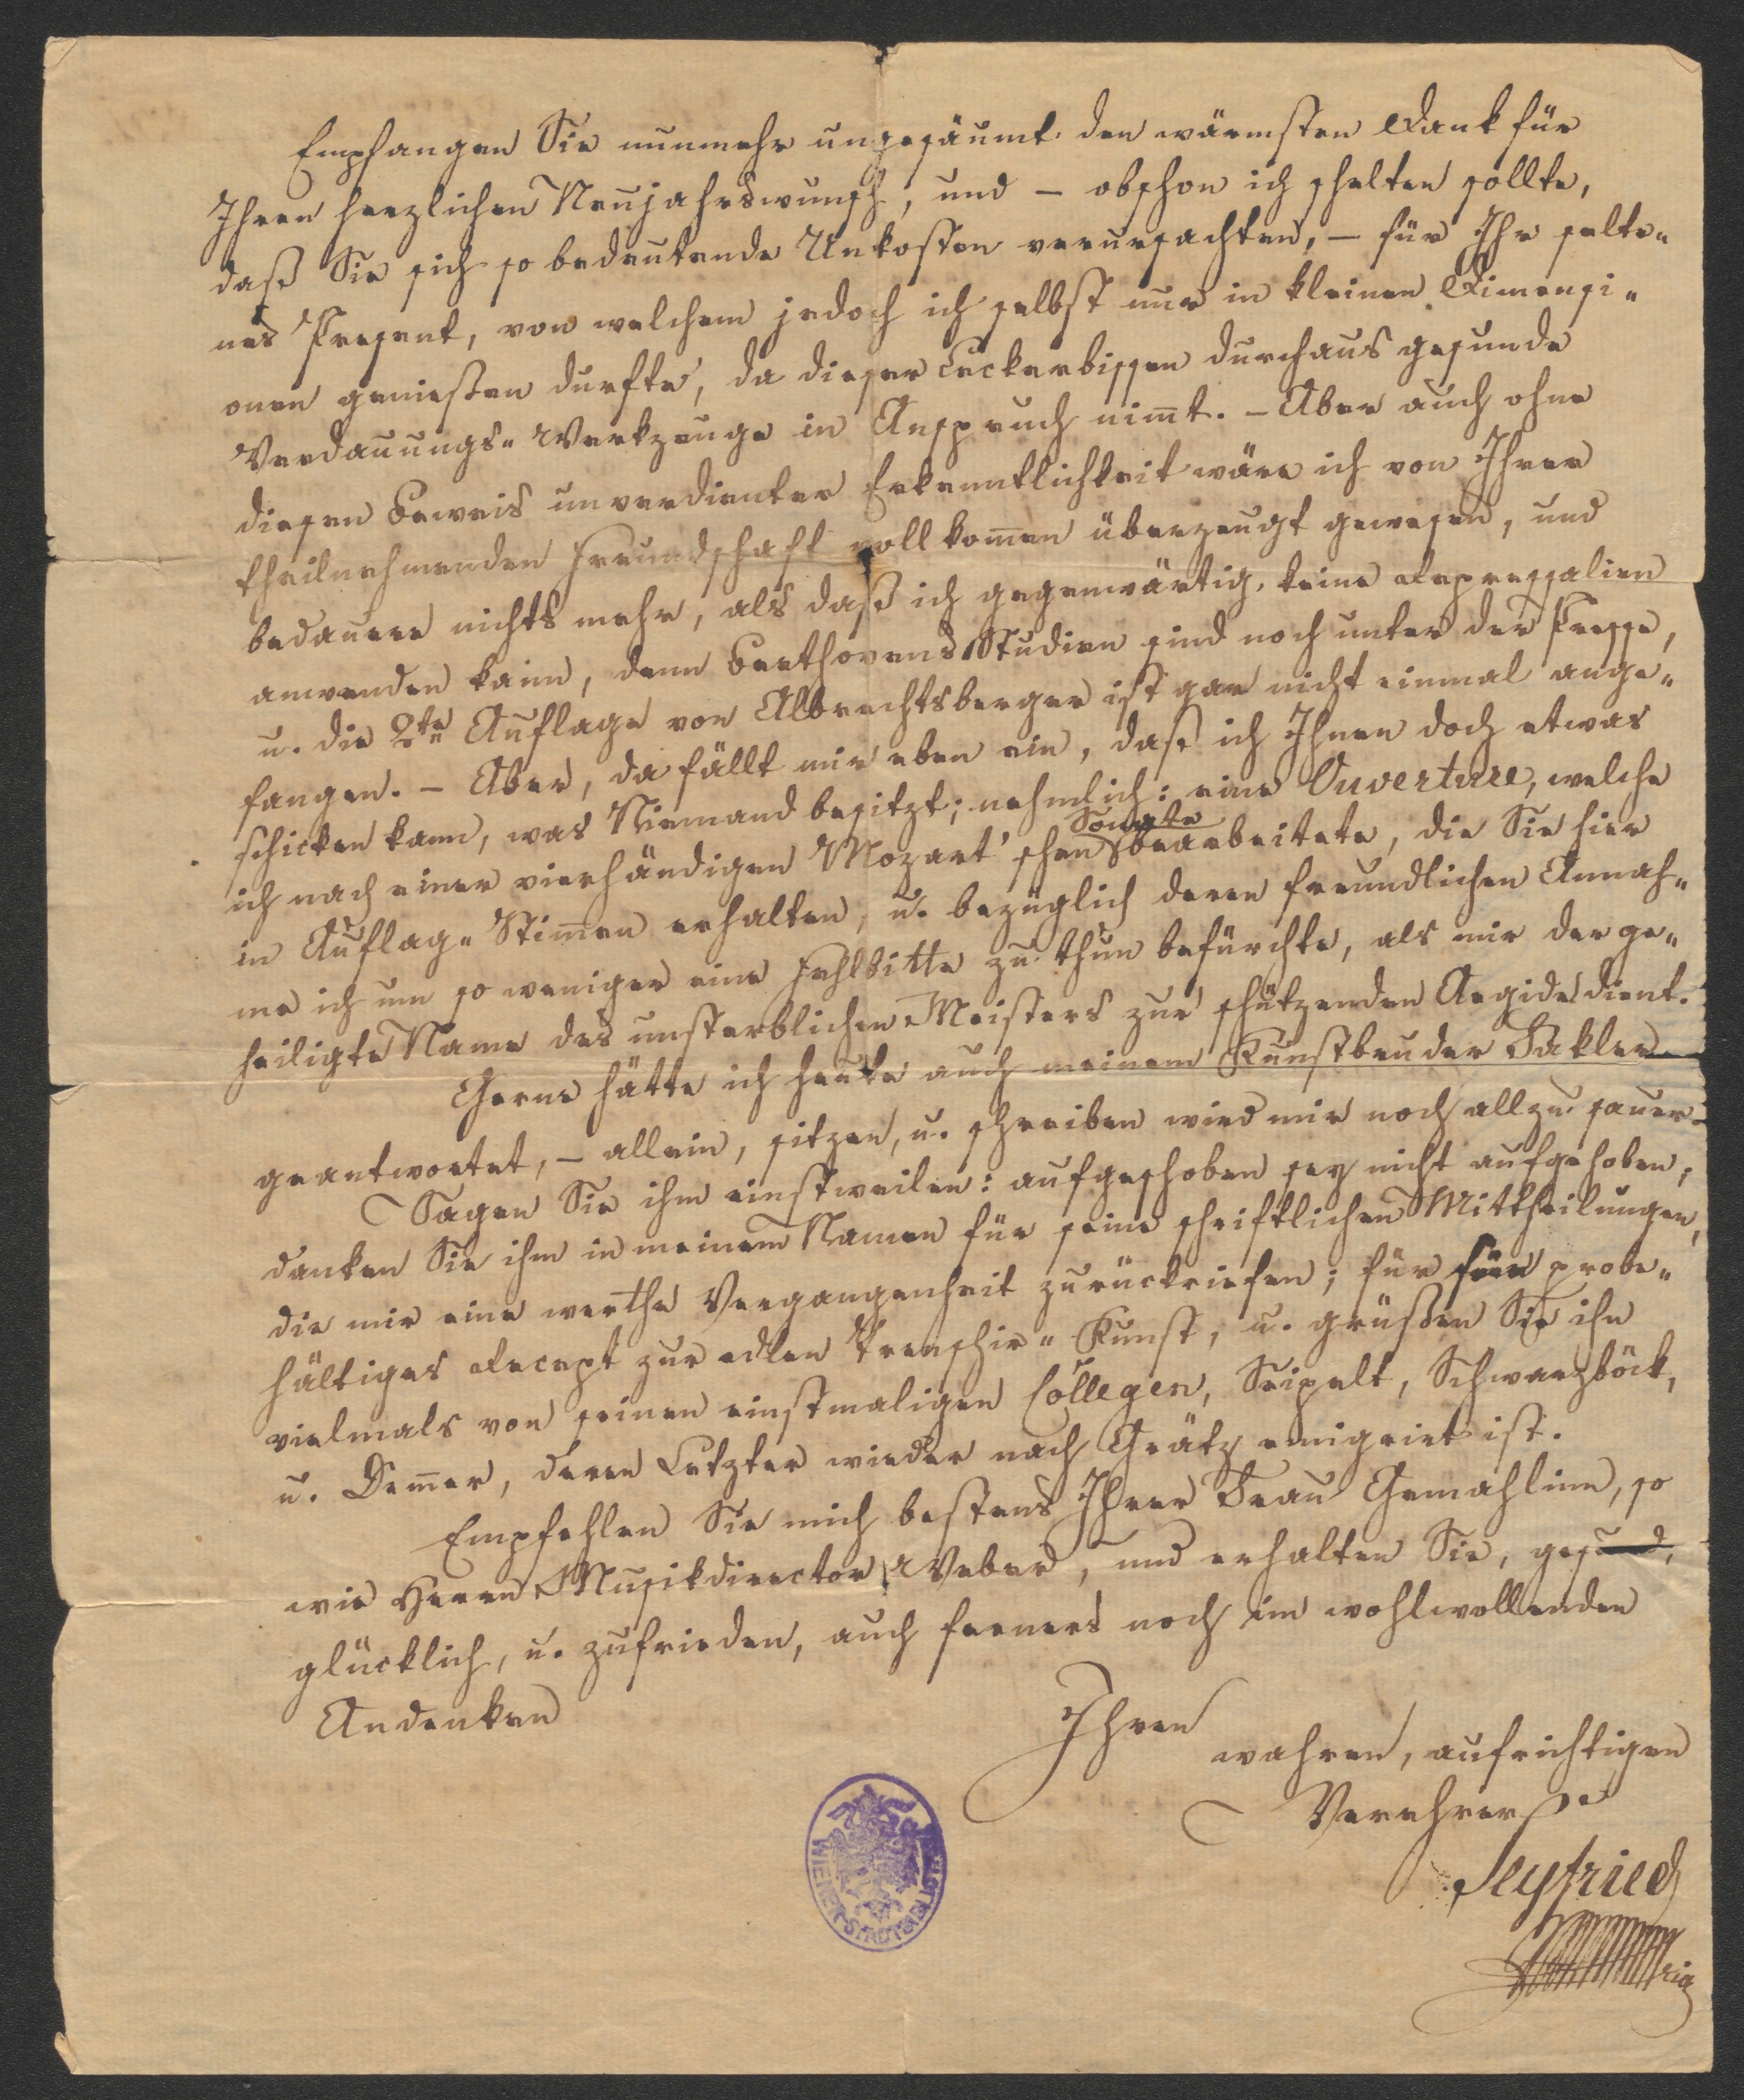 Empfangen Sie nunmehr ungesäumt den wärmsten Dank für
Ihren herzlichen Neujahrswunsch, und – obschon ich schelten sollte,
daß Sie sich so bedeutende Unkosten verursachten, – für Ihr selte„
nes Present, von welchem jedoch ich selbst nur in kleinen Dimensi„
onen genießen durfte, da dieser Leckerbissen durchaus gesunde
Verdauungs„Werkzeuge in Anspruch nim̄t. – Aber auch ohne
diesen Beweis unverdienter Erkenntlichkeit wäre ich von Ihrer
theilnehmenden Freundschaft vollkom̄en überzeugt gewesen, und
bedauere nichts mehr, als daß ich gegenwärtig keine Repressalien
anwenden kann, denn Beethovens Studien sind noch unter der Presse,
u. die 2te Auflage von Albrechtsberger ist gar nicht einmal ange„
fangen. – Aber, da fällt mir eben ein, daß ich Ihnen doch etwas
schicken kann, was Niemand besitzt; nehmlich: eine Ouverture, welche
Sonate
ich nach einer vierhändigen Mozart'schen bearbeitete, die Sie hier
in Auflag„Stim̄en erhalten, u. bezüglich deren freundlichen Annah„
me ich um so weniger eine Fehlbitte zu thun befürchte, als mir der ge„
heiligte Name des unsterblichen Meisters zur schützenden Aegide dient.
Gerne hätte ich heute auch meinem Kunstbruder
geantwortet, – allein, sitzen, u. schreiben wird mir noch allzu sauer.
Sagen Sie ihm einstweilen: aufgeschoben sey nicht aufgehoben;
danken Sie ihm in meinem Namen für seine schriftlichen Mittheilungen,
die mir eine werthe Vergangenheit zurückriefen; für sein probe„
hältiges Recept zur edlen Transchir„Kunst, u. grüßen Sie ihn
vielmals von seinen einstmaligen Collegen, Seipelt, Schwarzböck,
u. Dem̄er, deren Letzter wieder nach Grätz emigrirt ist.
Empfehlen Sie mich bestens Ihrer Frau Gemahlinn, so
wie Herrn Musikdirector Weber, und erhalten Sie, gesund,
glücklich, u. zufrieden, auch ferners noch im wohlwollenden
Andenken
Ihren
wahren, aufrichtigen
Verehrer
Seyfried
WIENER STADTBIBLIOTHEK